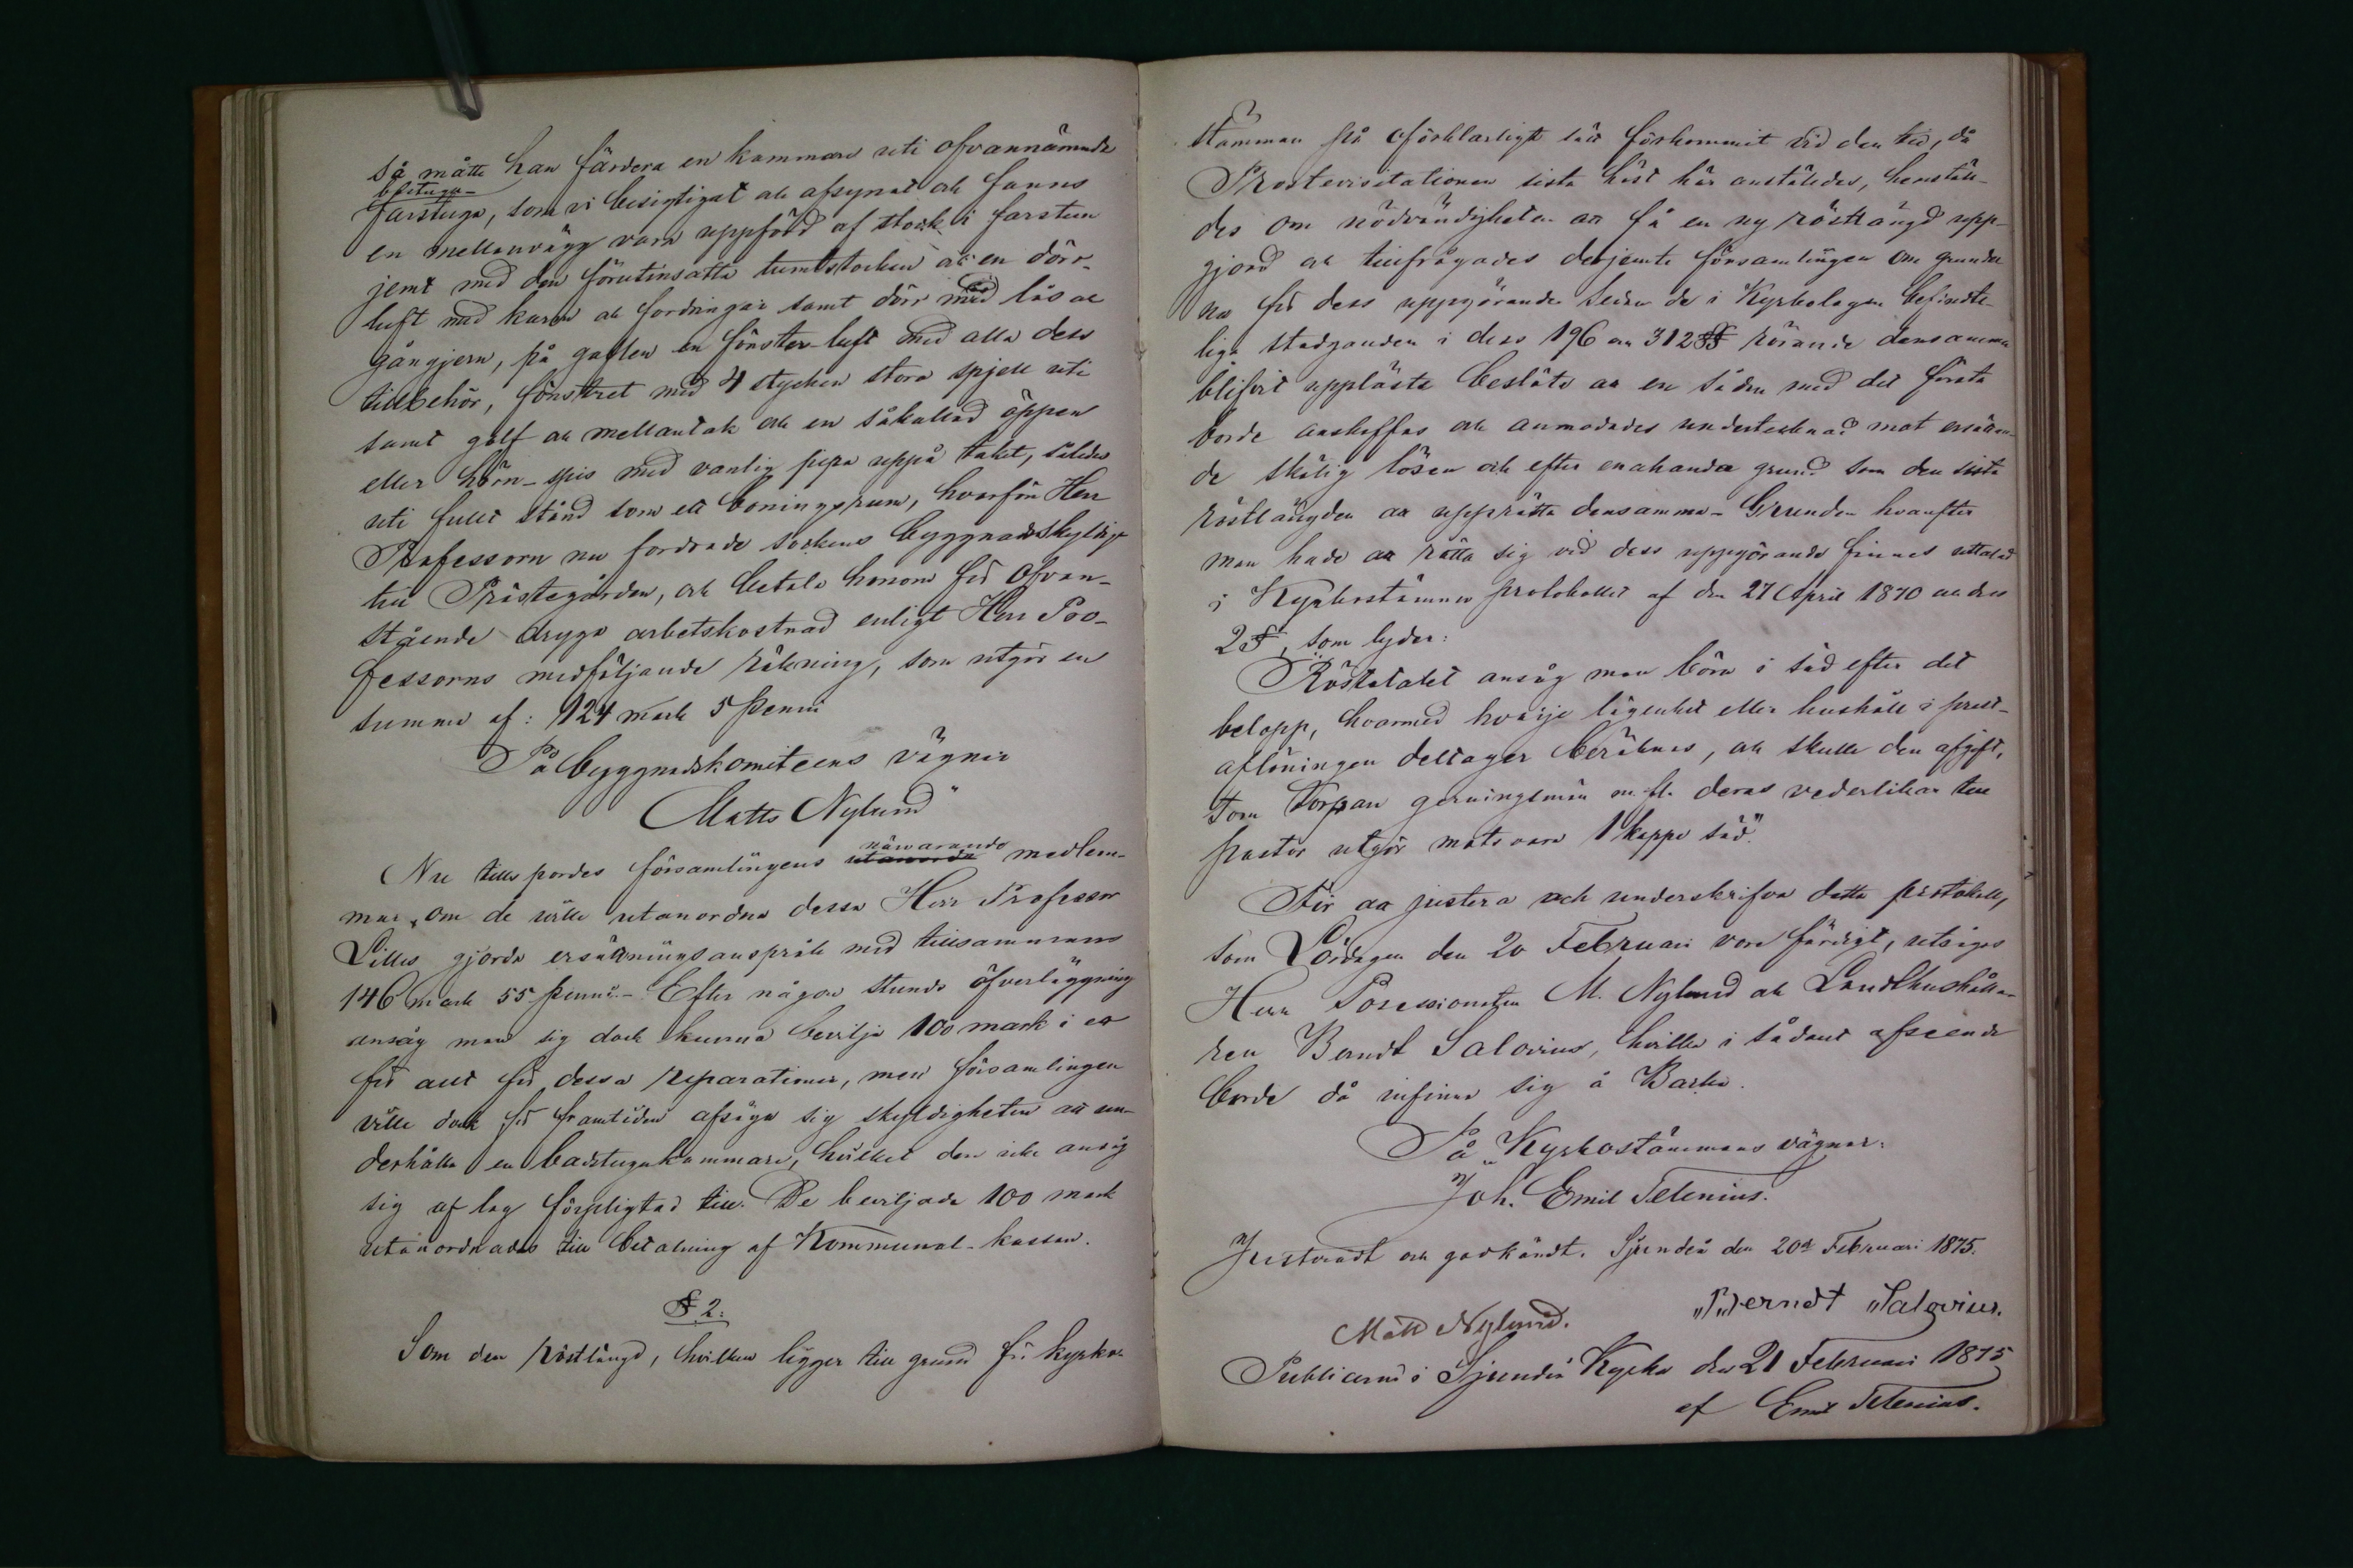 så måtte han färdera en kammare uti ofvannämnde
badstugu-
farstuga, som vi besigtigat och afsynat och fanns
en mellanvägg vara uppförd af stock i farstun
jemt med den förutinsatta tumstocken och en dörr-
luft med karm och fordringar samt dörr med lås och
gångjern, på gaflen en fönster-luft med alla dess
tillbehör, fönstret med 4 stycken stora spjell uti
samt golf och mellantak och en såkallad öppen
eller hörn-spis med vanlig pipa uppå taket, således
uti fullt stånd som ett boningsrum, hvarför Herr
Professorn nu fordrade sockens byggnadsskyldige
till Prästegården, och betala honom för ofvan-
stående dryga arbetskostnad enligt Herr Pro-
fessorns medföljande räkning, som utgör en
summa af: 124 mark 5 penni
På byggnadskomiteens vägnar
Matts Nylund"
närvarande
Nu tillspordes församlingens medlem-
mar, om de ville utanordna dessa Herr Professor
Lilles gjorda ersättningsanspråk med tillsammans
146 mark 55 penni.- Efter någon stunds öfverläggning
ansåg man sig dock kunna bevilja 100 mark i ett
för allt för dessa reparationer, men församlingen
ville dock för framtiden afsäga sig skyldigheten att un-
derhålla en badstugukammare, hvilket den icke ansåg
sig af lag förpligtad till. De beviljade 100 mark
utanordnades till betalning af Kommunal-kassan.
§ 2.
Som den röstlängd, hvilken ligger till grund för kyrko-
stämman på oförklarligt sätt förkommit vid den tid, då
Prostevisitationen sista höst här anstäldes, hemstäl-
des om nödvändigheten att få en ny röstlängd upp-
gjord och tillfrågades derjemte församlingen om grunder
na för dess uppgörande sedan de i Kyrkolagen befindt-
liga stadganden i dess 196 och 312 §§ rörande densamma
blifvit upplästa beslöts att en sådan med det första
borde anskaffas och anmodades undertecknad mot ersättan-
de skälig lösen och efter enahanda grund som den sista
röstlängden att upprätta densamma.- Grunden hvarefter
man hade att rätta sig vid dess uppgörande finnes uttalad
i Kyrkostämmo protokollet af den 27 April 1870 och dess
2 §, som lyder:
"Röstetalet ansåg man böra i säd efter det
belopp, hvarmed hvarje lägenhet eller hushåll i prest-
aflöningen deltager beräknas, och skulle den afgift,
som torpare gerningsmän m. fl. deras vederlikar till
pastor utgör motsvara 1 kappe säd."
För att justera och underskrifva detta protokoll,
som Lördagen den 20 Februari vore färdigt, utsågos
Herr Possessionaten M. Nylund och Landthushålla-
ren Berndt Salovius, hvilka i sådant afseende
borde då infinna sig å Backa.
På Kyrkostämmans vägnar:
Joh. Emil Telenius.
Justeradt och godkändt. Sjundeå den 20de Februari 1875.
Matts Nylund. Berndt Salovius.
Publicerad i Sjundeå Kyrka den 21 Februari 1875
af Emil Telenius.